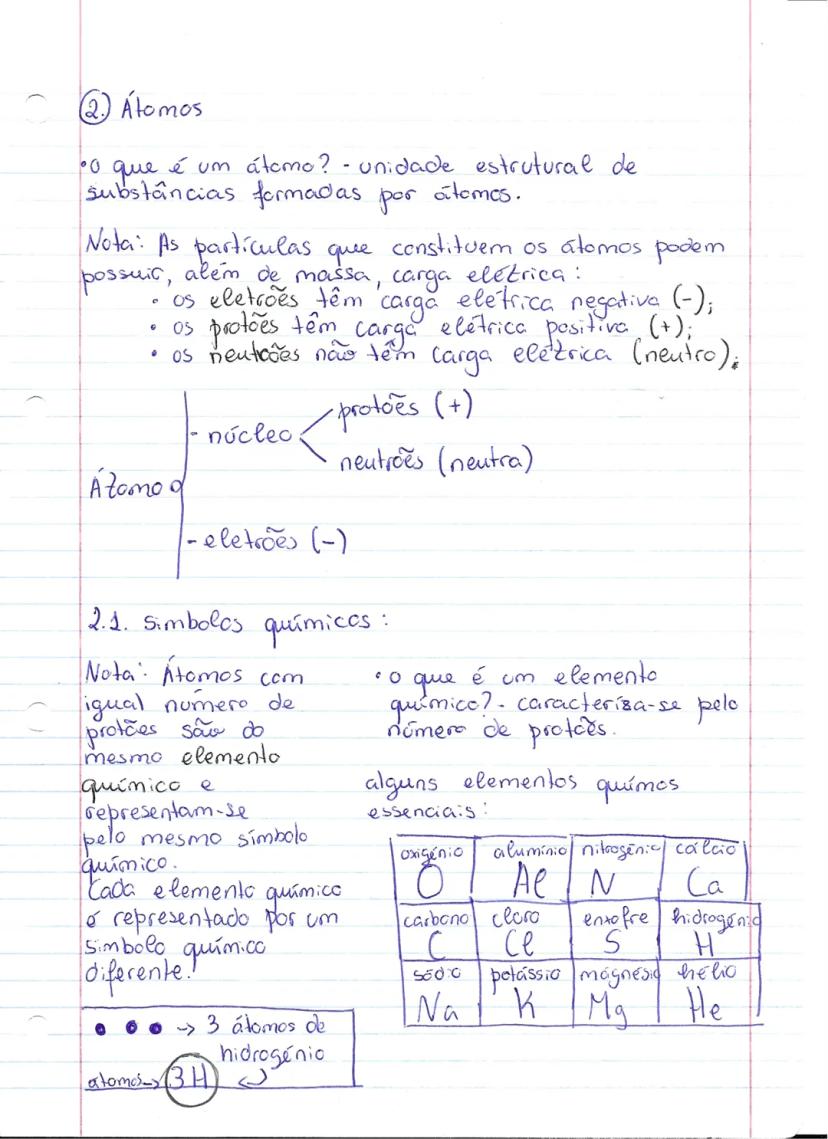 2. Átomos
•O que é um átomo? - unidade estrutural de
substâncias formadas por átomos.
Nota: As partículas que constituem os átomos podem
possuir, além de massa, carga elétrica:
• os eletrões têm carga elétrica negativa (-);
• os protões têm carga elétrica positiva (+);
• os neutrões não têm carga elétrica (neutro);
Átomo
- núcleo
protões (+)
neutrões (neutra)
- eletrões (-)
2.1. Simbolos químicos:
Nota: Átomos com
igual número de
protões são do
mesmo elemento
químico e
representam-se
pelo mesmo símbolo
químico.
Cada elemento químico
é representado por um
simbolo químico
diferente.
• o que é um elemento
químico? - caracteriza-se pelo
número de protões.
alguns elementos químos
essenciais:
oxigénio alumínio nitrogénio cálcio
O Al N Ca
carbono cloro enxofre hidrogénio
C Cl S H
sódio potássio magnésio hélio
Na K Mg He
• • • → 3 átomos de
hidrogénio
átomos → 3H